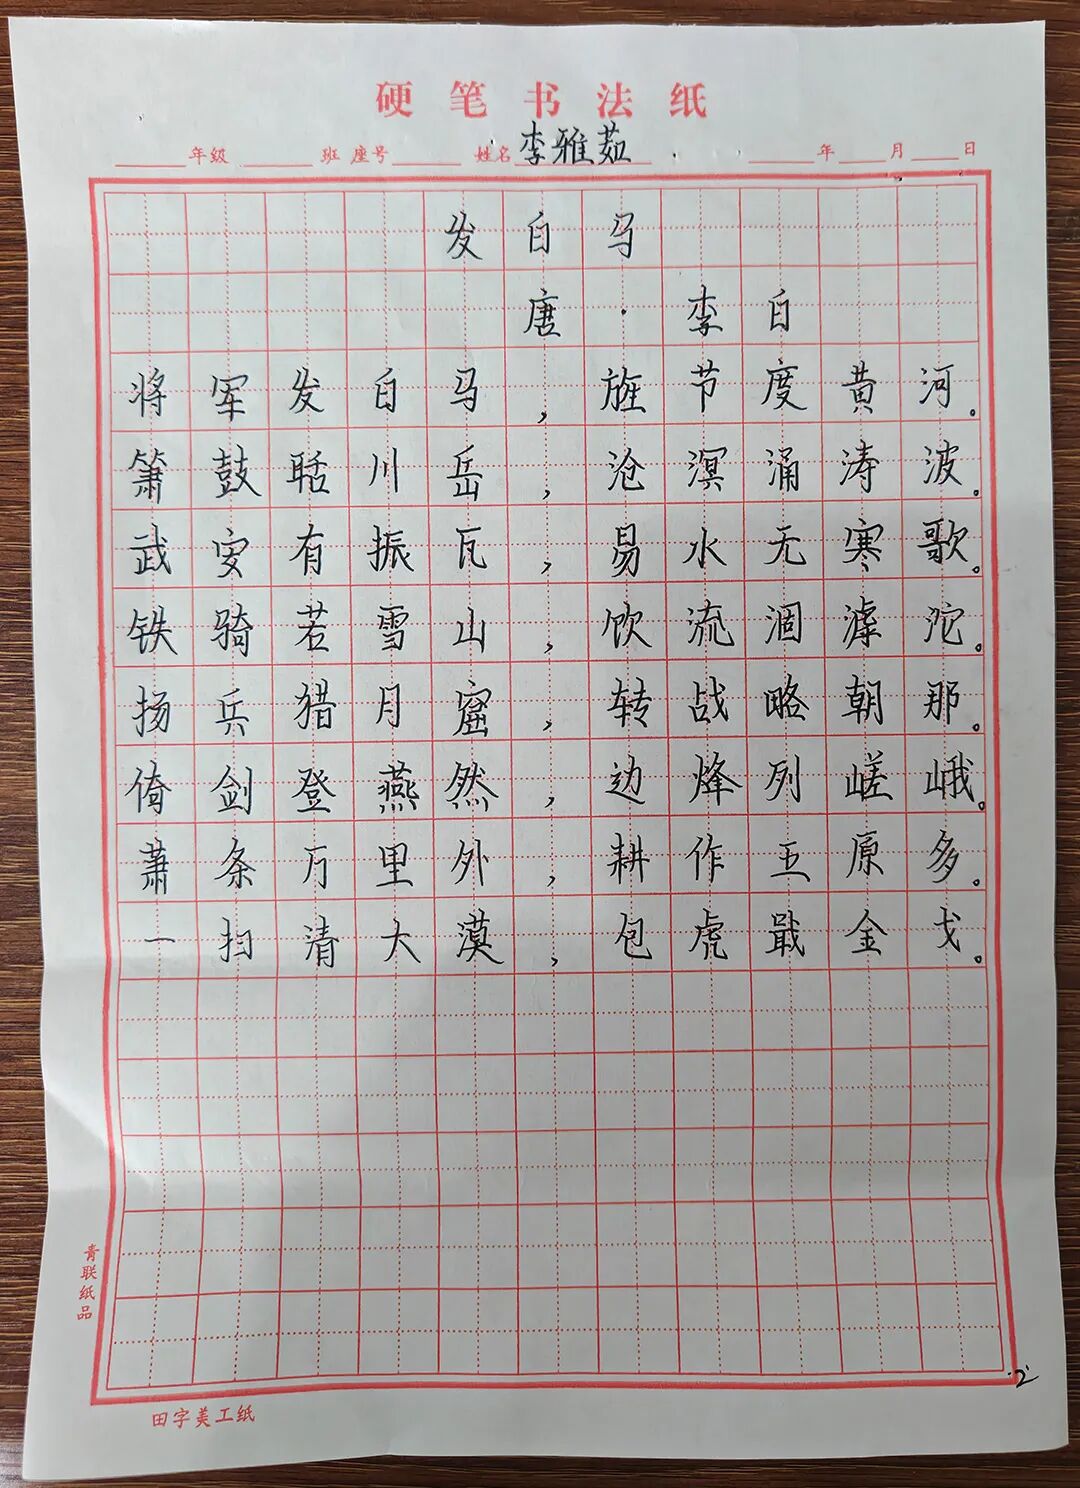 硬笔书法纸
年级 班 座号 姓名 李雅茹 年 月 日
发白马
唐·李白
将军发白马，旌节度黄河。
箫鼓聒川岳，沧溟涌涛波。
武安有振瓦，易水无寒歌。
铁骑若雪山，饮流涸滹沱。
扬兵猎月窟，转战略朝那。
倚剑登燕然，边烽列嵯峨。
萧条万里外，耕作五原多。
一扫清大漠，包虎戢金戈。
青联纸品
田字美工纸
2